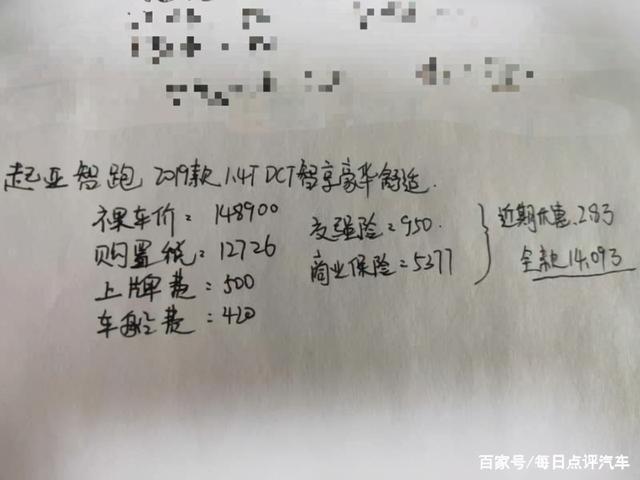 起亚智跑 2019款 1.4T DCT智享豪华舒适.
裸车价: 148900
购置税: 12726
上牌费: 500
车船费: 420
交强险=950.
商业保险=5377
近期优惠.2.83
全款14.093
百家号/每日点评汽车